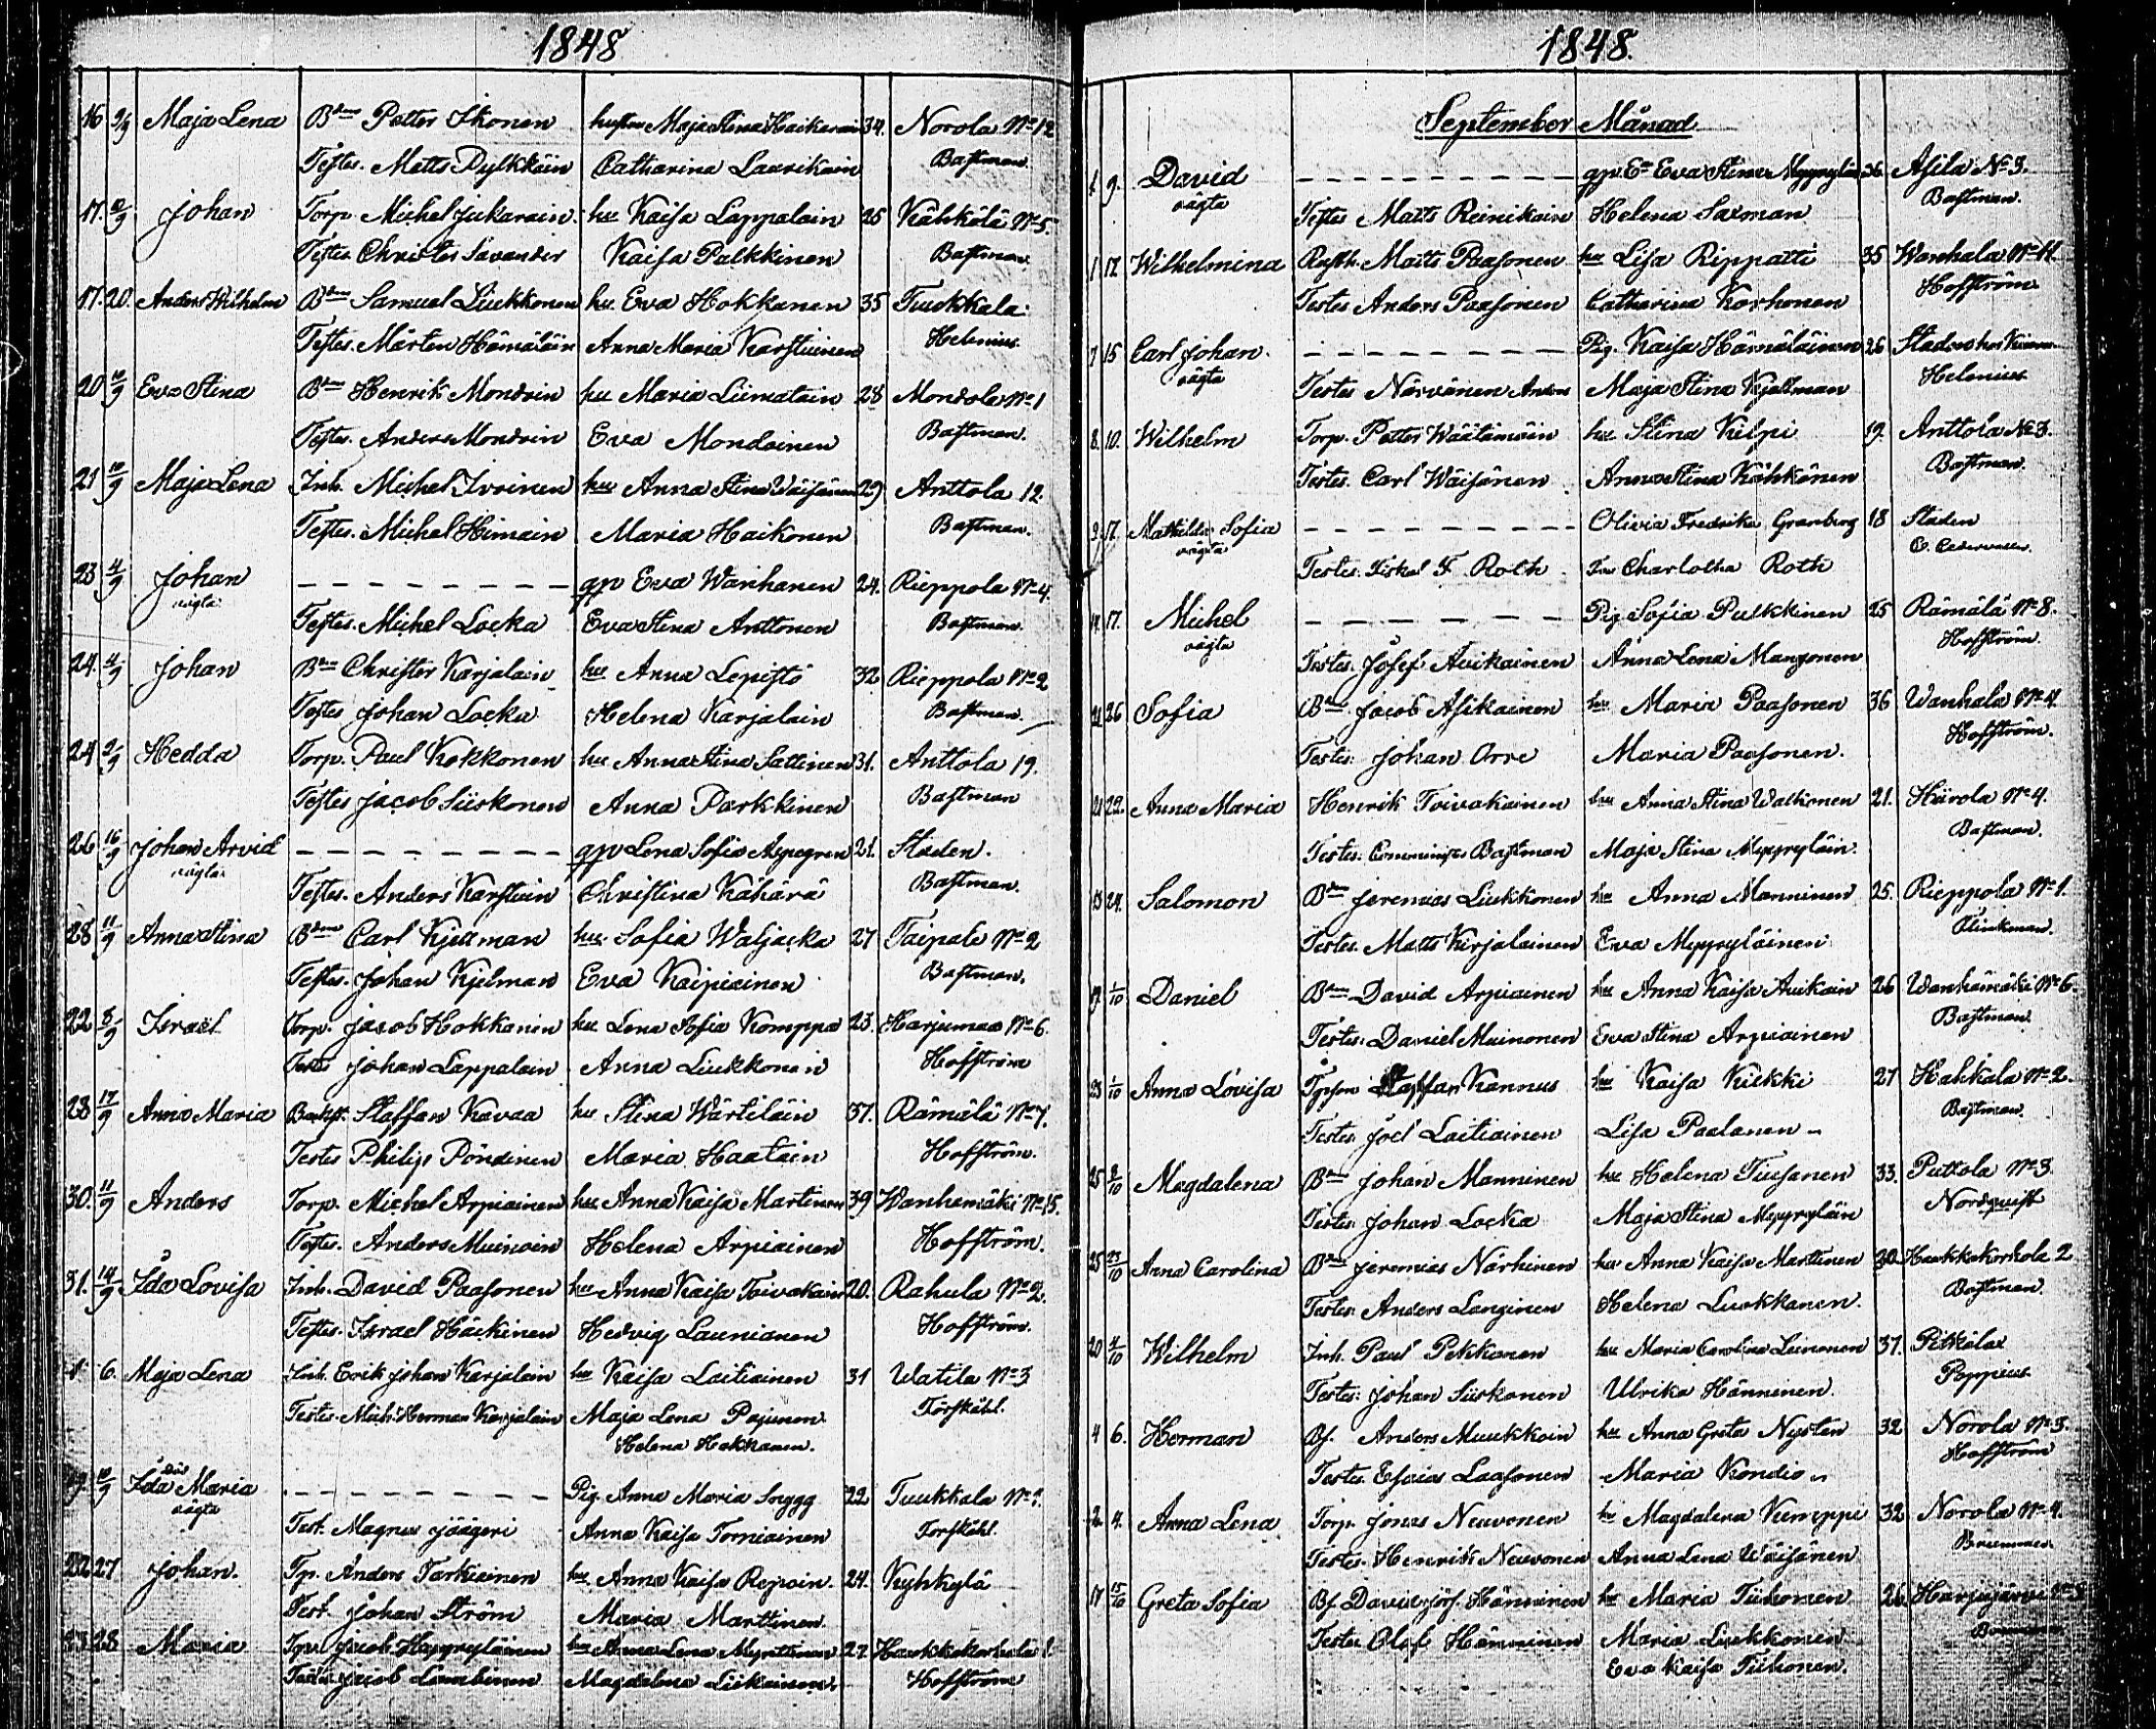 1848
16 9/9 Maja Lena Bden Petter Ikonen hustru Maja Stina Haikarain 34. Norola No 12
Testes. Matts Pylkkäin Catharina Laurikain Bastman
17. 10/9 Johan Torp. Michel Jukarain. hu Kaisa Lappalain 25 Kähkölä No 5.
Testes Christer Savander Kaisa Pulkkinen Bastman
17. 20. Anders Wilhelm Bden Samuel Liukkonen hu. Eva Hokkanen 35 Tuukkala
Testes. Mårten Hämäläin Anna Maria Karstuinen Helenius
20 10/9 Eva Stina Bden Henrik Mondoin hu Maria Liimatain 28 Mondola No 1
Testes. Anders Mondoin Eva Mondoinen Bastman.
21 10/9 Maja Lena Inh. Michel Ivoinen hu Anna Stina Wäisänen 29 Anttola 12.
Testes. Michel Himain Maria Haikonen Bastman.
23 4/9 Johan oägta – – – gp Eva Wanhanen 24. Rieppola No 4.
Testes. Michel Locka Eva Stina Anttonen Bastman.
24. 4/9 Johan Bden Christer Karjalain hu Anna Lepistö 32 Rieppola No 2
Testes Johan Locka Helena Karjalain Bastman.
24 2/9 Hedda Torp. Paul Kokkonen hu Anna Stina Sattinen 31. Anttola 19.
Testes Jacob Siiskonen Anna Parkkinen Bastman
26 16/9 Johan Arvid oägta – – – gp Lena Sofia Aspegren 21. Staden.
Testes. Anders Karstuin Christina Kähärä Bastman.
28 11/9 Anna Stina Bden Carl Kjellman hu. Sofia Waljacka 27 Taipale No 2
Testes. Johan Kjelman Eva Kaipiainen Bastman.
22 3/9 Israel Torp. Jacob Hokkanen hu Lena Sofia Komppa 23. Harjumaa No 6.
Testes Johan Lappalain Anna Liukkonen Hoffström
28 17/9 Anna Maria Staffan Kavaa hu Stina Wärtiläin 37. Rämälä No 7.
Testes Philip Pöndinen Maria Haatain Hoffström.
30. 11/9 Anders Torp. Michel Arpiainen hu Anna Kaisa Martinen 39 Wanhamäki No 15.
Testes. Anders Muinoin Helena Arpiainen Hoffström.
31. 14/9 Ida Lovisa Inh. David Paasonen hu Anna Kaisa Toivakain 20. Rahula No 2.
Testes. Israel Häckinen Hedvig Launianen Hoffström.
6. Maja Lena Inh. Erik Johan Karjalain hu Kaisa Laitiainen 31 Watila No 3
Testes. Mich. Herman Karjalain Maja Lena Pajunen Forsskåhl.
Helena Hokkanen.
19. 10/9 Ida Maria oägta – – – Pig. Anna Maria Snygg 22 Tuukkala No 1.
Test. Magnus Jäägeri Anna Kaisa Torniainen Forsskåhl.
22 27 Johan. Tp. Anders Tarkiainen hu. Anna Kaisa Repoin. 24. Kyhkylä
Test. Johan Ström Maria Marttinen
23. 28 Maria Tp. Jacob Hapyryläinen hu Anna Lena Mynttinen 27. Haukkakorhola 1.
Testes Jacob Lambinen Magdalena Liikainen. Hoffström
1848.
September Månad
1. 9. David oägta – – – gp. Eva Stina Myyryläin 36. Asila No 3.
Testes Matts Reinikain Helena Saxman Bastman.
1 12 Wilhelmina Matts Paasonen hu Lisa Rippatti 35 Wanhala No 4.
Testes Anders Paasonen Catharina Korhonen Hoffström
7 15 Carl Johan. oägta – – – Pig. Kaisa Hämäläinen 26 Staden hos
Testes Närvänen Anders Maja Stina Kjellman Helenius
8. 10. Wilhelm Torp. Petter Wäätämöin hu Stina Kilpi 19. Anttola No 3.
Testes. Carl Wäisänen Anna Stina Kähkönen Bastman.
9. 17. Mathilda Sofia oägta – – – Olivia Fredrika Granberg 18 Staden
Testes. Fiskal F. Roth Fru Charlotta Roth
17. Michel oägta – – – Pig Sofia Pulkkinen 25 Rämälä No 8.
Testes. Josef Auikainen Anna Lena Manzonen Hoffström
21 26 Sofia Bden Jacob Asikainen hu Maria Paasonen 36 Wanhala No 4.
Testes: Johan Orre Maria Paasonen. Hoffström.
21 22. Anna Maria Henrik Toivakainen hu Anna Stina Walkonen 21. Hiirola No 4.
Testes. Comminister Bastman Maja Stina Myyryläin. Bastman.
13 24. Salomon Bden Jeremias Liukkonen hu Anna Manninen 25. Rieppola No 1.
Testes. Matts Kirjalainen Eva Myyryläinen
17. 1/10 Daniel Bden David Arpiainen hu Anna Kaisa Auikain 26 Wanhamäki No 6.
Testes. Daniel Muinonen Eva Stina Arpiainen Bastman
23 1/10 Anna Lovisa Staffan Kannus hu Kaisa Kiekki 27 Kahkala No 2.
Testes. Joel Laitiainen Lisa Paalanen Bastman.
25 2/10 Magdalena Bden Johan Manninen hu Helena Tiusanen 33. Puttola No 3
Testes. Johan Locka Maja Stina Myyryläin Nordquist
25 23/10 Anna Carolina Bden Jeremias Närhinen hu Anna Kaisa Marttinen 30. Haukkakorhola 2
Testes. Anders Langinen Helena Luukkanen. Bastman.
20 4/10 Wilhelm Inh. Paul Pekkanen hu Maria Carolina Leinonen 37. Pitkälax
Testes: Johan Siiskonen Ulrika Hänninen. Poppius
4 6. Herman Bf. Anders Muukkoin hu Anna Greta Nysten 32. Norola No 3
Testes. Esaias Laasonen Maria Kondio Hoffström
2. 4. Anna Lena Torp. Jonas Neuvonen hu Magdalena Kemppi 32 Norola No 4.
Testes. Henrik Neuvonen Anna Lena Wäisänen Brummer
17 15/10 Greta Sofia Bf. David Jos. Hänninen hu Maria Tiihonen 26. Harjujärvi No 3
Testes Olof Hänninen Maria Luukkonen
Eva Kaisa Tiihonen.